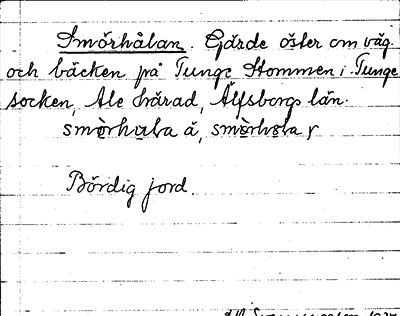 Smörhålan. Gärde öster om väg
och bäcken på Tunge Stommen i Tunge
socken, Ale härad, Älfsborgs län.
Bördig jord.